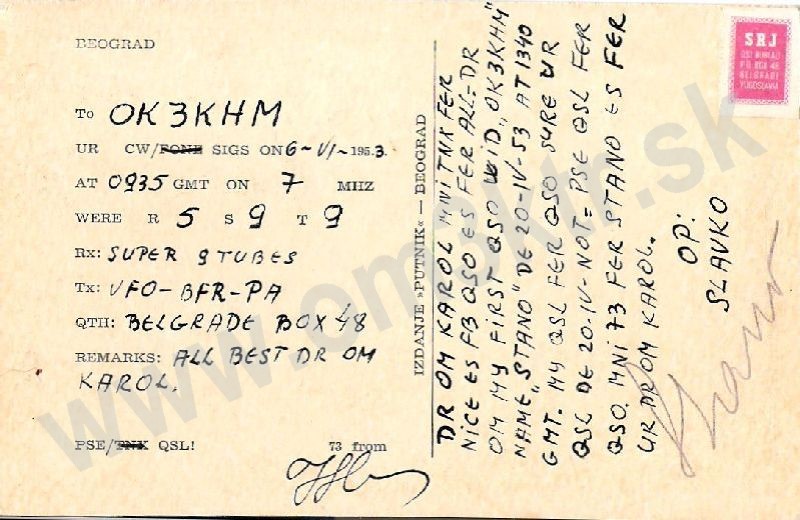 BEOGRAD
To OK3KHM
UR CW/FONE SIGS ON 6-VI-1953.
AT 0935 GMT ON 7 MHZ
WERE R 5 S 9 T 9
Rx: SUPER 9 TUBES
Tx: VFO-BFR-PA
QTH: BELGRADE BOX 48
REMARKS: ALL BEST DR OM
KAROL.
PSE/TNX QSL! 73 from
IZDANJE »PUTNIK« — BEOGRAD
DR OM KAROL MNI TNX FER
NICE ES FB QSO ES FER ALL=DR
OM MY FIRST QSO WID „OK3KHM"
NAME „STANO" DE 20-IV-53 AT 1340
GMT. MY QSL FER QSO SURE UR
QSL DE 20-IV-NOT= PSE QSL FER
QSO. MNI 73 FER STANO ES FER
UR DR OM KAROL.
OP:
SLAVKO
SRJ
QSL BUREAU
PO BOX 48
BELGRADE
YUGOSLAVIA
www.om3klr.sk